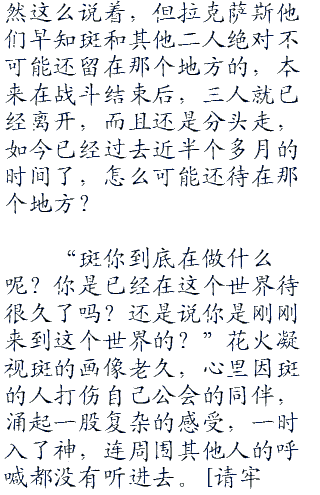 然这么说着，但拉克萨斯他
们早知斑和其他二人绝对不
可能还留在那个地方的，本
来在战斗结束后，三人就已
经离开，而且还是分头走，
如今已经过去近半个多月的
时间了，怎么可能还待在那
个地方？
“斑你到底在做什么
呢？你是已经在这个世界待
很久了吗？还是说你是刚刚
来到这个世界的？”花火凝
视斑的画像老久，心里因斑
的人打伤自己公会的同伴，
涌起一股复杂的感受，一时
入了神，连周围其他人的呼
喊都没有听进去。[请牢